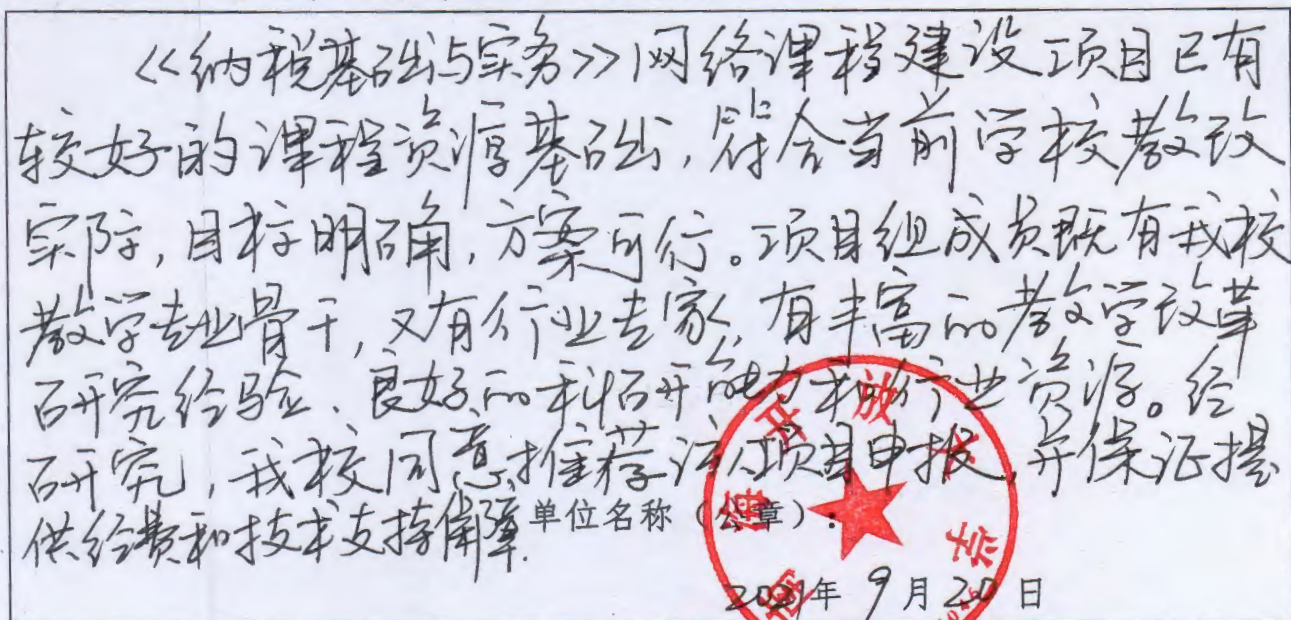 《纳税基础与实务》网络课程建设项目已有
较好的课程资源基础,符合当前学校教改
实际,目标明确,方案可行。项目组成员既有我校
教学专业骨干,又有行业专家,有丰富的教学改革
研究经验、良好的科研能力和行业资源。经
研究,我校同意推荐该项目申报,并保证提
供经费和技术支持保障.
单位名称(公章):
海开放大学
2021年9月20日